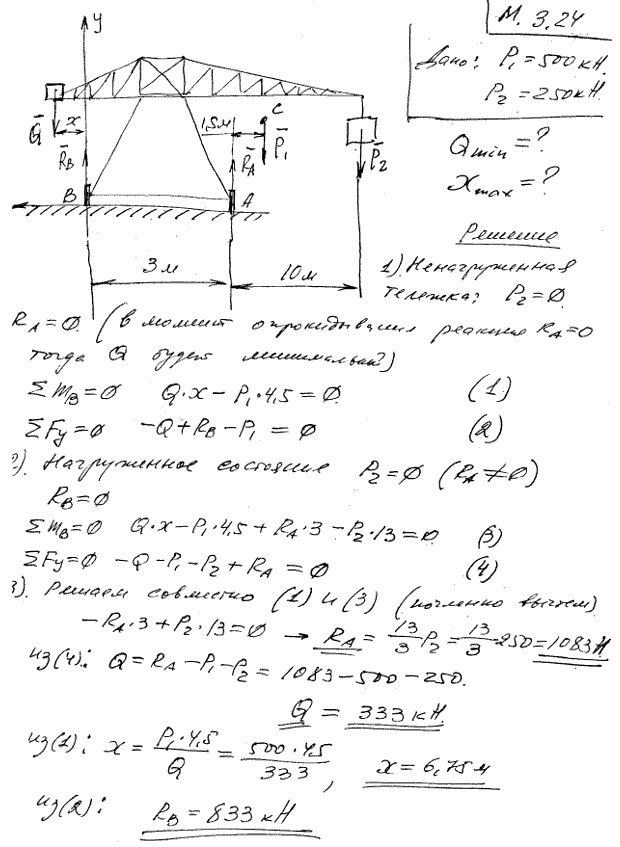 М. 3.24
Дано: P₁ = 500 кН.
P₂ = 250 кН.
Qmin = ?
xmax = ?
y
Q̄
x
R̄B
1,5 м
R̄A
C
P̄₁
P̄₂
B
A
3 м
10 м
Решение
1). Ненагруженная
тележка: P₂ = 0.
RA = 0. (в момент опрокидывания реакция RA = 0
тогда Q будет минимальной)
Σ mB = 0 Q·x − P₁·4,5 = 0. (1)
Σ Fy = 0 −Q + RB − P₁ = 0 (2)
2). Нагруженное состояние P₂ = 0 (RA ≠ 0)
RB = 0
Σ mB = 0 Q·x − P₁·4,5 + RA·3 − P₂·13 = 0. (3)
Σ Fy = 0 −Q − P₁ − P₂ + RA = 0 (4)
3). Решаем совместно (1) и (3) (почленно вычтем)
−RA·3 + P₂·13 = 0 → RA = 13/3 P₂ = 13/3·250 = 1083 Н.
из (4): Q = RA − P₁ − P₂ = 1083 − 500 − 250.
Q = 333 кН.
из (1): x = P₁·4,5/Q = 500·4,5/333, x = 6,75 м
из (2): RB = 833 кН